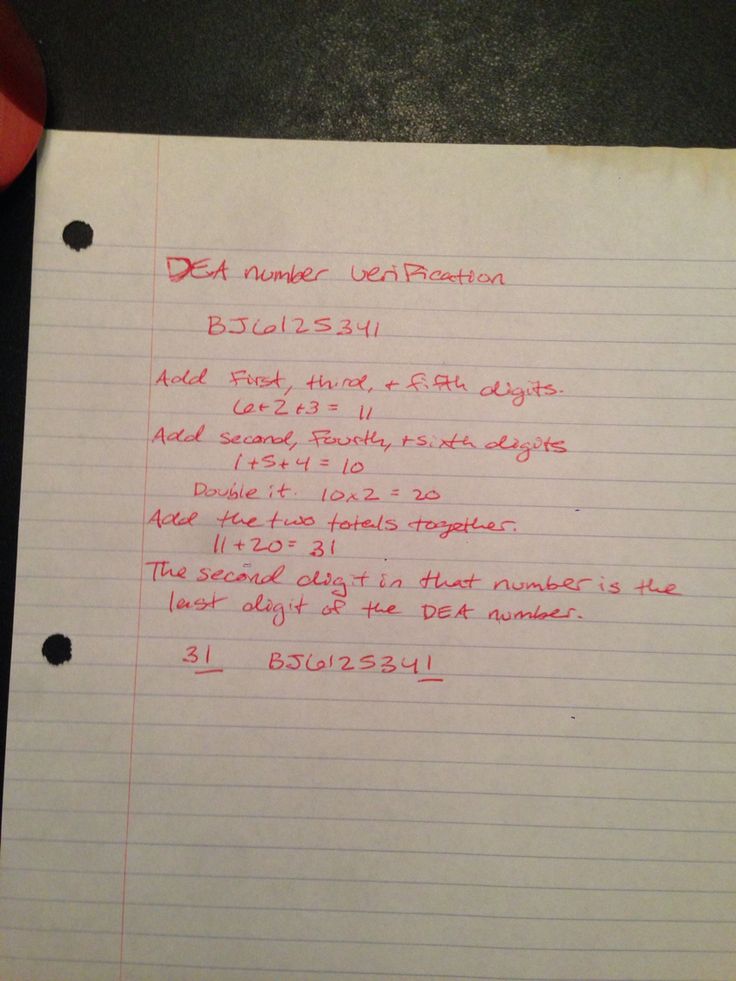 DEA number verification
BJ6125341
Add first, third, + fifth digits.
6+2+3 = 11
Add second, fourth, + sixth digits
1+5+4 = 10
Double it. 10x2 = 20
Add the two totals together.
11+20= 31
The second digit in that number is the
last digit of the DEA number.
31 BJ6125341